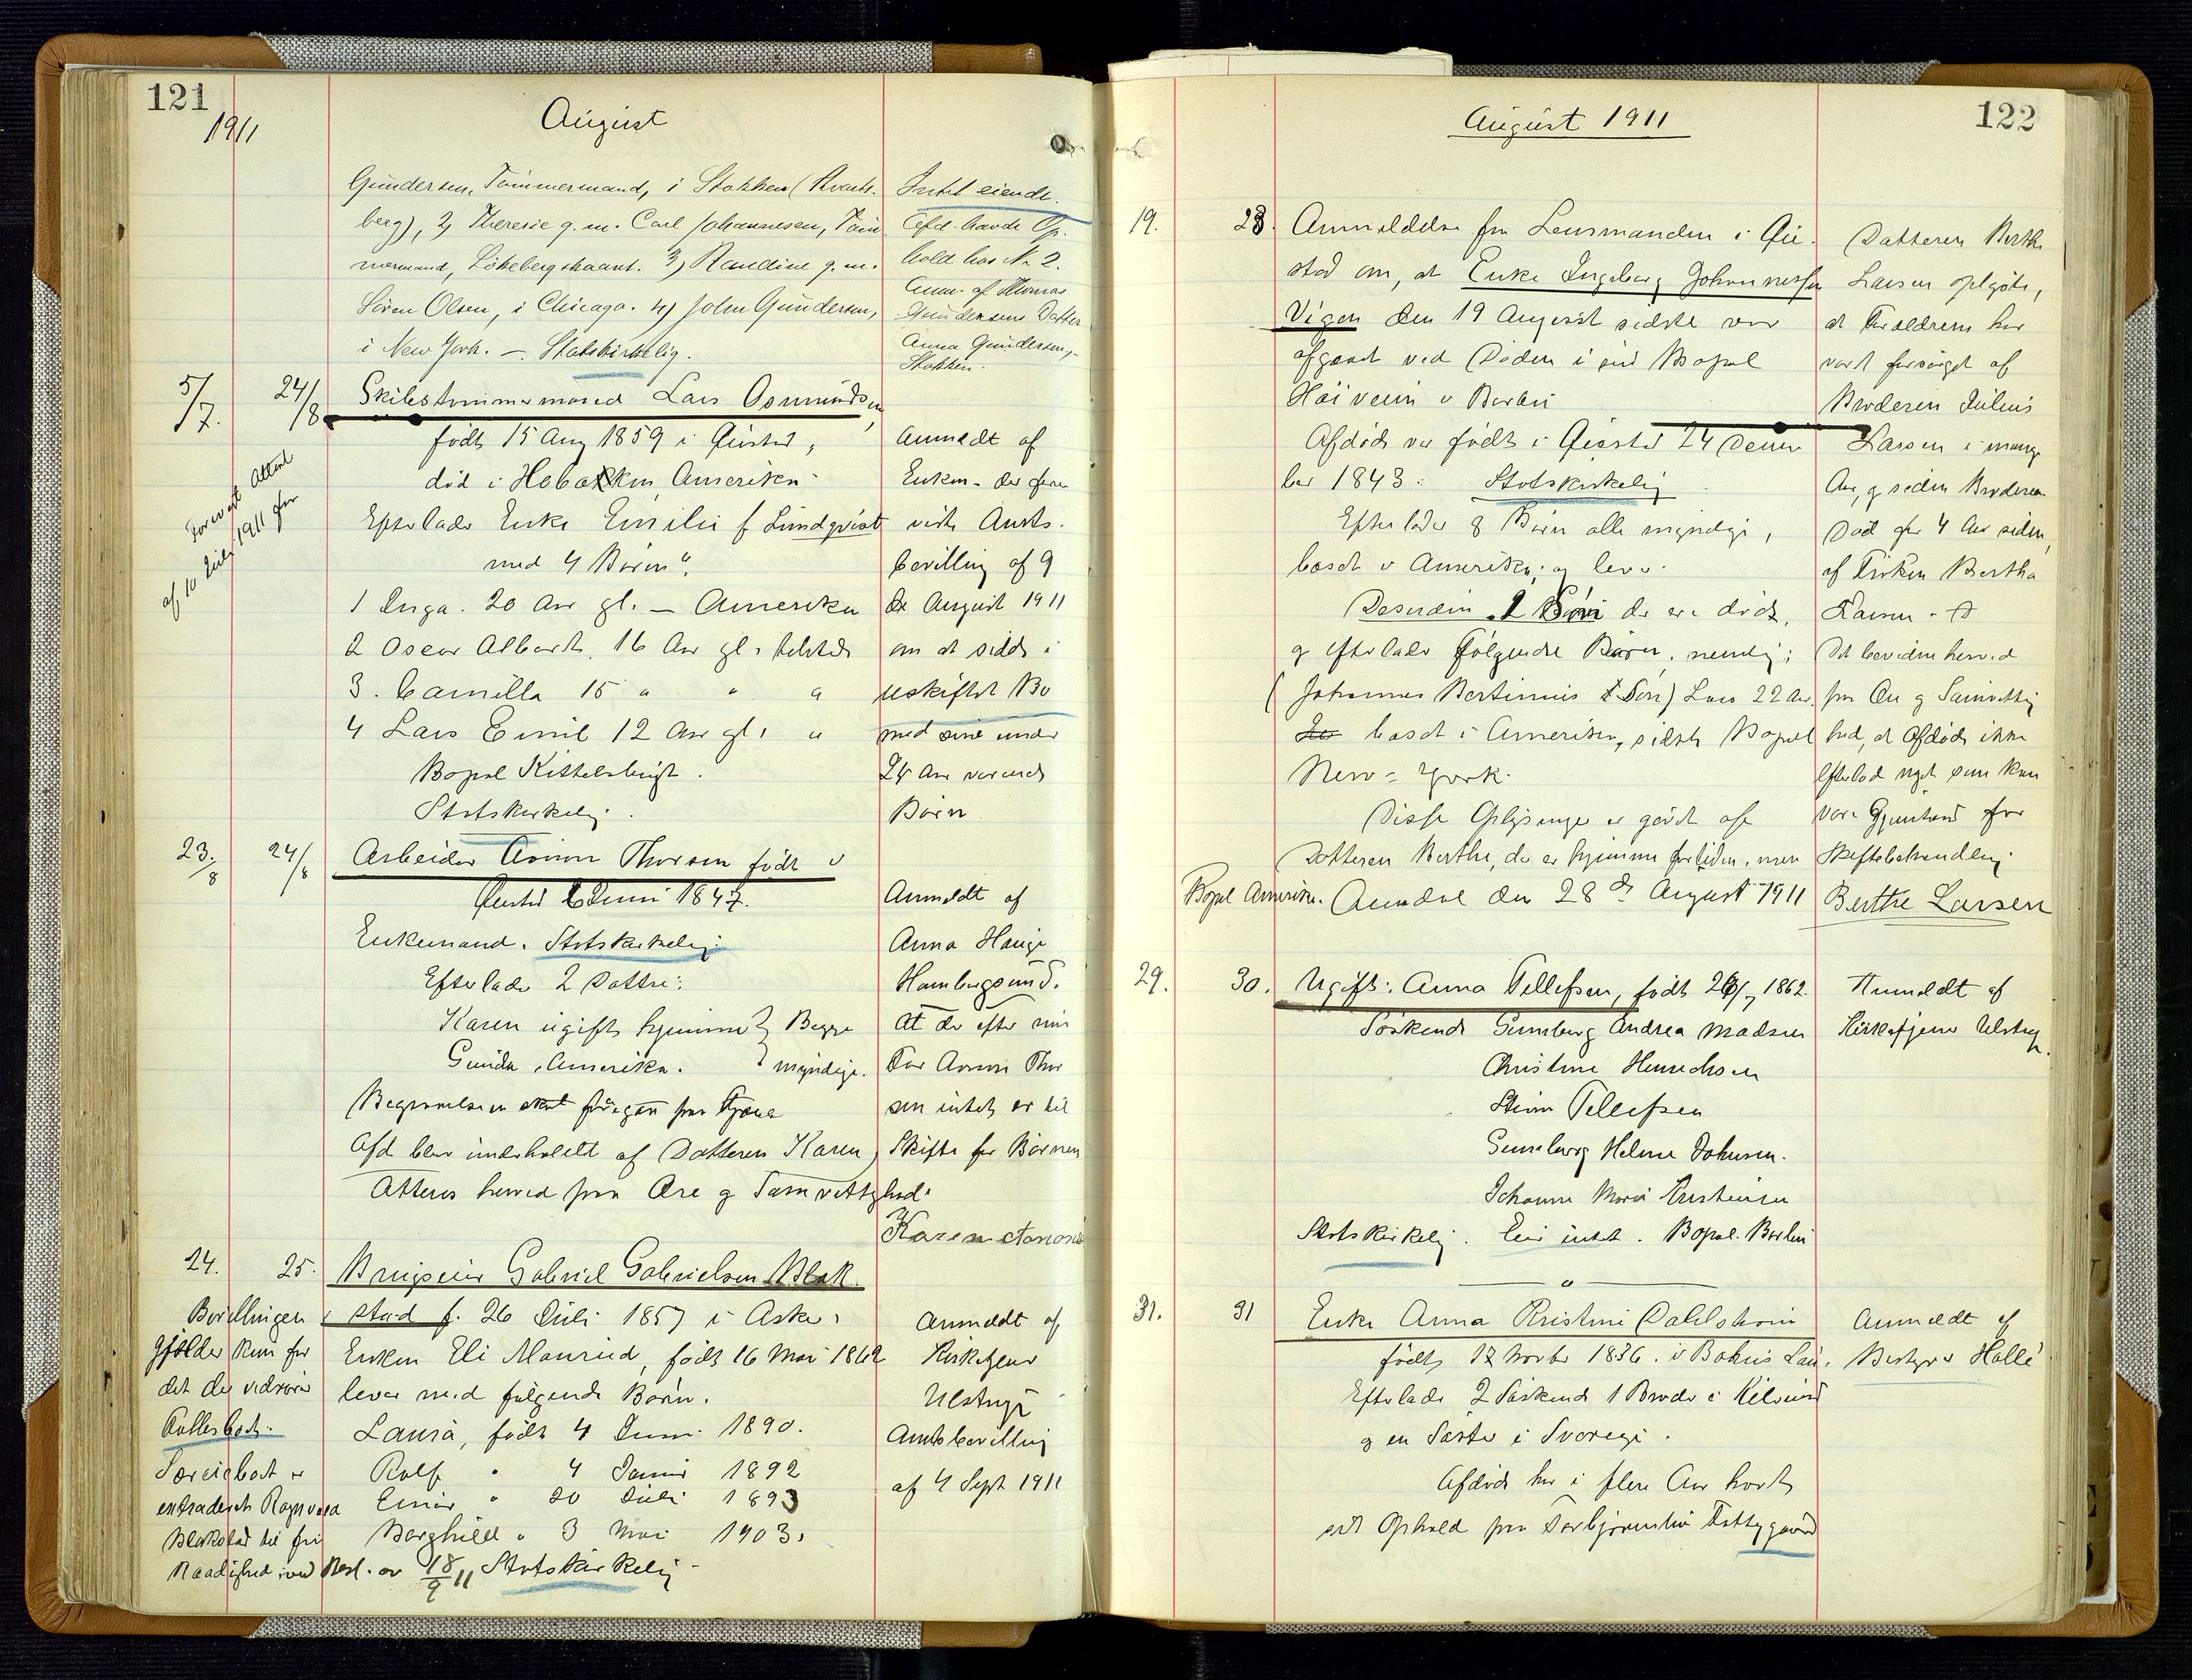 121
1911
August
Gundersen, Tømmermand, i Stokken (Kvarts-
berg), 2) Theresie g. m. Carl Johannesen, Tøm
mermand, Løkebergskaant. 3) Randine g. m.
Søren Olsen, i Chicago. 4) John Gundersen,
i New York. —. Statskirkelig.
Intet eiende.
Afd. havde Op-
hold hos No 2.
Anm. af Thomas
Gundersens Datter
Anna Gundersen,
Stokken.
5/7. 24/8 Skibstømmermand Lars Osmundsen
født 15 Aug 1859 i Øiestad,
død i Hoboken Amerika
Efterlader Enke Emilie f. Lundqvist
med 4 Børn:
1 Inga. 20 Aar gl. — Amerika
2 Oscar Albert, 16 Aar gl.
3. Camilla 15 " " "
4 Lars Emil 12 Aar gl. "
Bopæl Kittelsbugt.
Statskirkelig.
Anmeldt af
Enken - der frem
viste Amts-
bevilling af 9
de August 1911
om at sidde i
uskiftet Bo
med sine under
Aar værende
Børn
Forevist Attest
af 10 Juli 1911 for
23./8 24/8 Arbeider Thorsen født i
Enkemand. Statskirkelig.
Efterlader 2 Døttre:
Karen ugift hjemme } Begge
Gunda, Amerika. } myndige.
Begravelsen skal foregaa fra Tromø
Afd blev underholdt af Datteren Karen
Atteres herved paa Ære og Samvittighed.
Anmeldt af
Anna Hauge
Hambugsund.
At der efter min
Far Thor
sen intet er til
Skifte for Børnene
Karen
24. 25. Brugseier Gabriel Gabrielsen Blak
stad f. 26 Juli 1857 i Asker.
Enken Eli Maurud, født 16 Mai 1862
lever med følgende Børn.
Laura, født 4 Juni 1890.
Rolf " 4 Januar 1892
Einar " 20 Juli 1893
Borghild " 3 Mai 1903.
Statskirkelig
Anmeldt af
Kirketjener
Ulstrup
Amtsbevilling
af 4 Sept 1911
Bevillingen
gjælder kun for
det der vedrører
Fællesboet.
Særeieboet er
extraderet Ragnvald
Blakstad til fri
Raadighed ived Besl. av 18/9 11
August 1911
122
19. 28. Anmeldelse fra Lensmanden i Øie-
stad om, at Enke Ingeborg Johannessen
Vigen den 19 August sidste var
afgaaet ved Døden i sin Bopæl
v Barbu
Afdøde var født i Øiestad 24 Decem
ber 1843: Statskirkelig
Efterlader 8 Børn alle myndige,
bosat v Amerika; og lever.
Desuden 2 Børn der ere døde,
og efterlader følgende Børn, nemlig:
(Johannes Bertinius Søn) Lars 22 Aar.
bosat i Amerika, sidste Bopæl
New-York.
Disse Oplysninger er gjort af
Datteren Berthe, der er hjemme fortiden, men
Bopæl Amerika. Arendal den 28de August 1911
Datteren Berthe
Larsen oplyste,
at Forældrene har
vært forsørget af
Broderen Julius
Larsen i mange
Aar, og siden Broderen
Død for 4 Aar siden,
af Enken Bertha
Larsen.
Det bevidnes herved
paa Ære og Samvittig
hed, at Afdøde ikke
efterlod noget som kan
være Gjenstand for
Skiftebehandling.
Berthe Larsen
29. 30. Ugift: Anna Tellefsen, født 1862.
Søskende Gunborg Andrea Madsen
Christine Henrichsen
Stian Tellefsen
Gunborg Helene Johnsen.
Johanne Marie Christensen
Statskirkelig. Eier intet. Bopæl. Barbu
Anmeldt af
Kirketjener Ulstrup.
31. 31 Enke Anna Kristine Dahlstrøm
født 12 Novbr 1836. i Bohus Län.
Efterlader 2 Søskende 1 Broder i
og en Søster i Sverige.
Afdøde har i flere Aar havt
sit Ophold paa Torbjørnsbu Fattiggaard
Anmeldt af
Bestyrer Halle